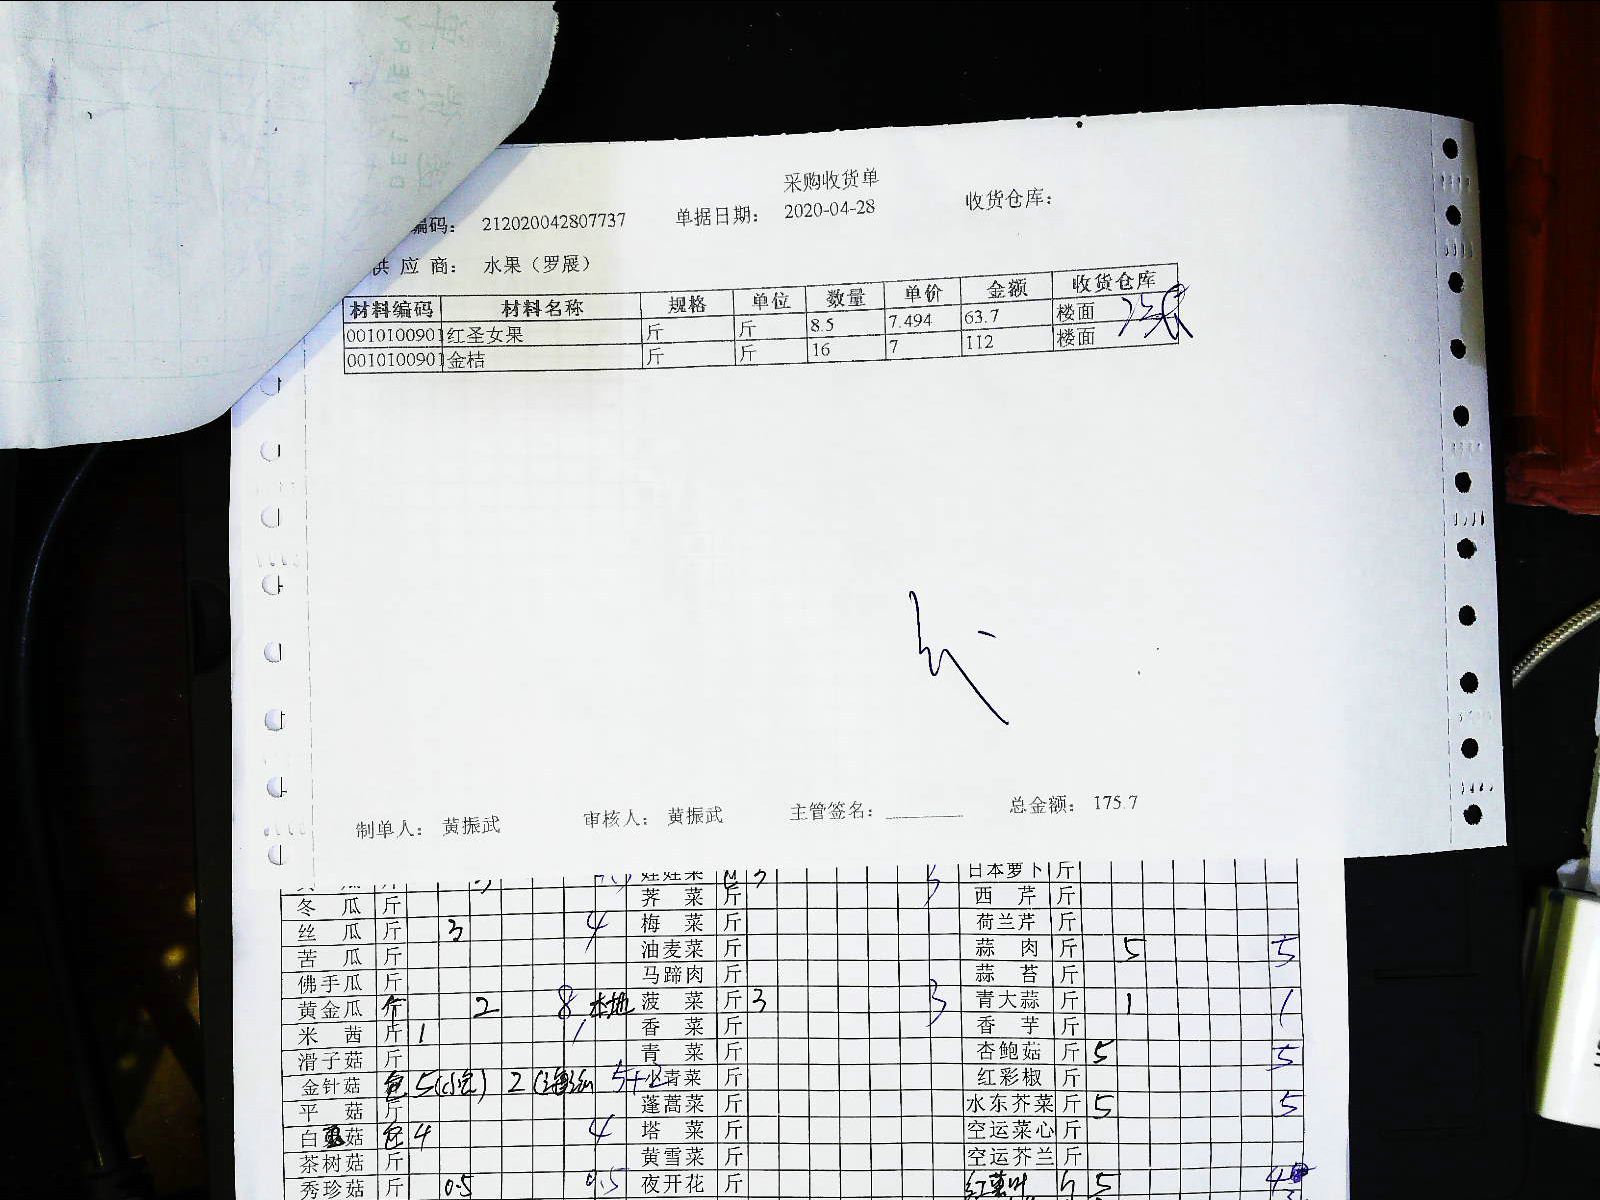 DELIVERY
采购收货单
编码： 212020042807737 单据日期： 2020-04-28 收货仓库：
供 应 商： 水果（罗展）
材料编码 材料名称 规格 单位 数量 单价 金额 收货仓库
0010100901 红圣女果 斤 斤 8.5 7.494 63.7 楼面
0010100901 金桔 斤 斤 16 7 112 楼面
制单人： 黄振武 审核人： 黄振武 主管签名： 总金额： 175.7
日本萝卜 斤
冬 瓜 斤 荠 菜 斤 西 芹 斤
丝 瓜 斤 3 4 梅 菜 斤 荷兰芹 斤
苦 瓜 斤 油麦菜 斤 蒜 肉 斤 5 5
佛手瓜 斤 马蹄肉 斤 蒜 苔 斤
黄金瓜 斤 2 8 本地 菠 菜 斤 3 3 青大蒜 斤 1 1
米 茜 斤 1 1 香 菜 斤 香 芋 斤
滑子菇 斤 青 菜 斤 杏鲍菇 斤 5 5
金针菇 包 5 2 5+2 青菜 斤 红彩椒 斤
平 菇 斤 蓬蒿菜 斤 水东芥菜 斤 5 5
白 菇 包 4 4 塔 菜 斤 空运菜心 斤
茶树菇 斤 黄雪菜 斤 空运芥兰 斤
秀珍菇 斤 0.5 0.5 夜开花 斤 红薯叶 5 4